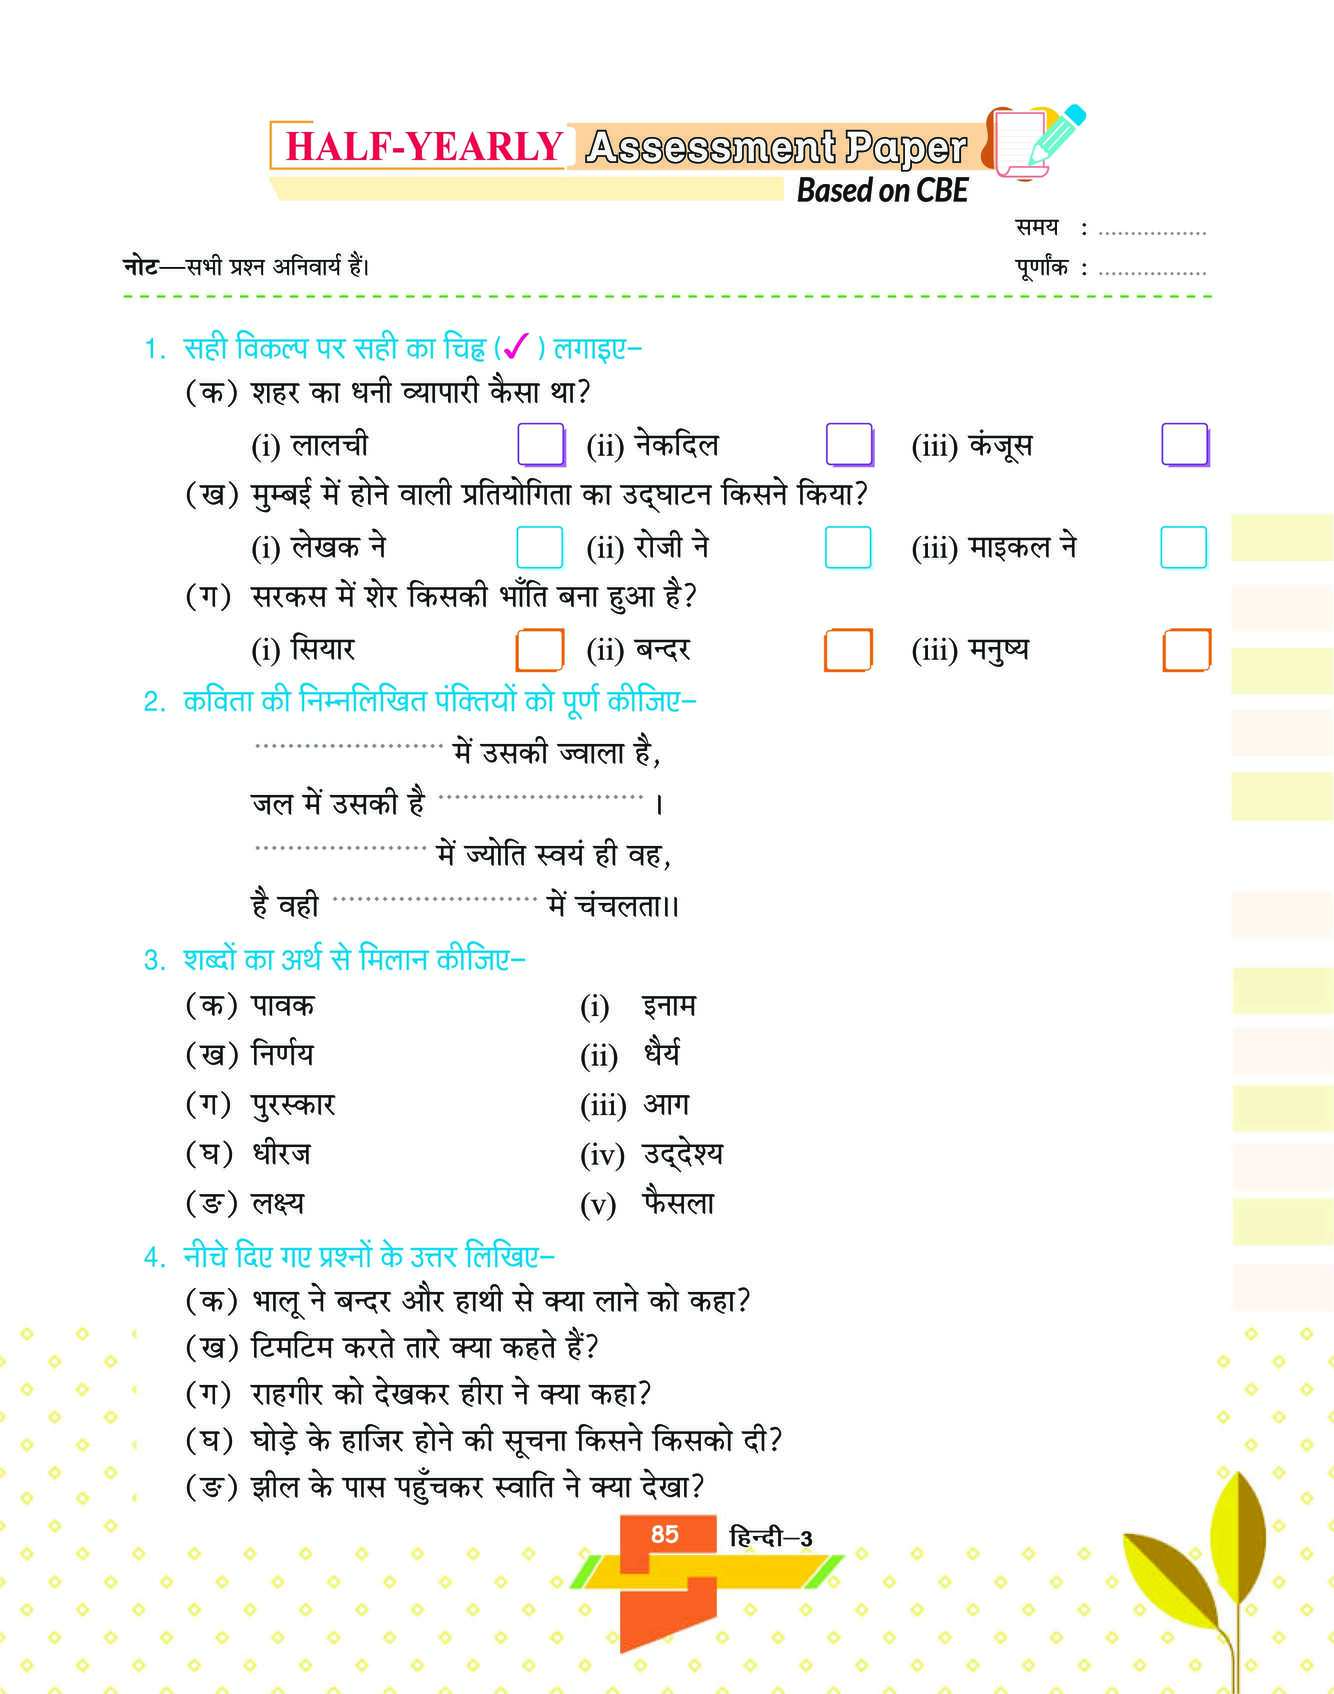 HALF-YEARLY Assessment Paper
Based on CBE
समय : ..................
नोट—सभी प्रश्न अनिवार्य हैं।
पूर्णांक : ..................
1. सही विकल्प पर सही का चिह्न (✓) लगाइए–
(क) शहर का धनी व्यापारी कैसा था?
(i) लालची (ii) नेकदिल (iii) कंजूस
(ख) मुम्बई में होने वाली प्रतियोगिता का उद्‌घाटन किसने किया?
(i) लेखक ने (ii) रोजी ने (iii) माइकल ने
(ग) सरकस में शेर किसकी भाँति बना हुआ है?
(i) सियार (ii) बन्दर (iii) मनुष्य
2. कविता की निम्नलिखित पंक्तियों को पूर्ण कीजिए–
....................... में उसकी ज्वाला है,
जल में उसकी है ......................... ।
..................... में ज्योति स्वयं ही वह,
है वही ......................... में चंचलता।।
3. शब्दों का अर्थ से मिलान कीजिए–
(क) पावक (i) इनाम
(ख) निर्णय (ii) धैर्य
(ग) पुरस्कार (iii) आग
(घ) धीरज (iv) उद्‌देश्य
(ङ) लक्ष्य (v) फैसला
4. नीचे दिए गए प्रश्नों के उत्तर लिखिए–
(क) भालू ने बन्दर और हाथी से क्या लाने को कहा?
(ख) टिमटिम करते तारे क्या कहते हैं?
(ग) राहगीर को देखकर हीरा ने क्या कहा?
(घ) घोड़े के हाजिर होने की सूचना किसने किसको दी?
(ङ) झील के पास पहुँचकर स्वाति ने क्या देखा?
85 हिन्दी–3